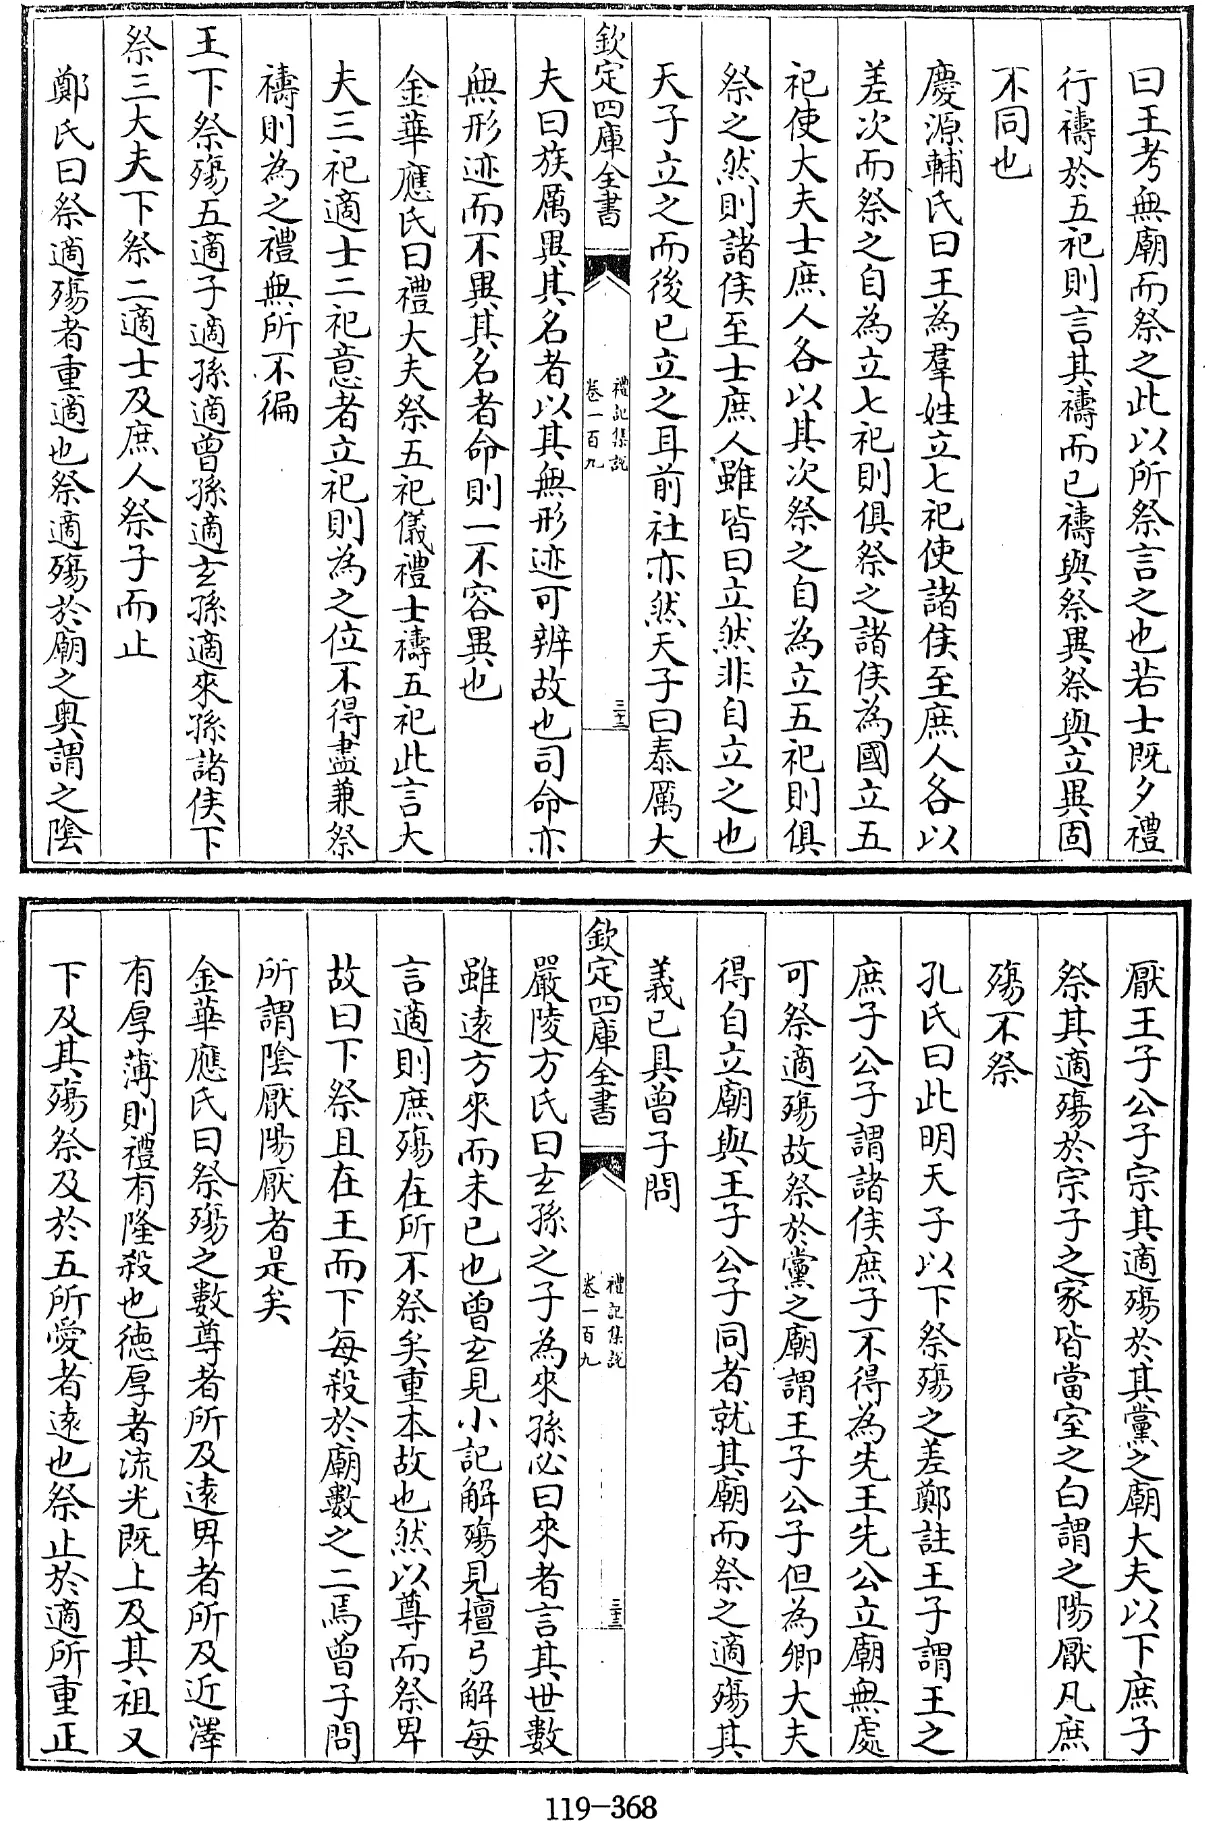 曰王考無廟而祭之此以所祭言之也若士既夕禮
行禱於五祀則言其禱而已禱與祭異祭與立異固
不同也
慶源輔氏曰王為羣姓立七祀使諸侯至庶人各以
差次而祭之自為立七祀則俱祭之諸侯為國立五
祀使大夫士庶人各以其次祭之自為立五祀則俱
祭之然則諸侯至士庶人雖皆曰立然非自立之也
天子立之而後已立之耳前社亦然天子曰泰厲大
欽定四庫全書
禮記集說
卷一百九
三十二
夫曰族厲異其名者以其無形迹可辨故也司命亦
無形迹而不異其名者命則一不容異也
金華應氏曰禮大夫祭五祀儀禮士禱五祀此言大
夫三祀適士二祀意者立祀則為之位不得盡兼祭
禱則為之禮無所不徧
王下祭殤五適子適孫適曾孫適玄孫適來孫諸侯下
祭三大夫下祭二適士及庶人祭子而止
鄭氏曰祭適殤者重適也祭適殤於廟之奥謂之陰
厭王子公子宗其適殤於其黨之廟大夫以下庶子
祭其適殤於宗子之家皆當室之白謂之陽厭凡庶
殤不祭
孔氏曰此明天子以下祭殤之差鄭註王子謂王之
庶子公子謂諸侯庶子不得為先王先公立廟無處
可祭適殤故祭於黨之廟謂王子公子但為卿大夫
得自立廟與王子公子同者就其廟而祭之適殤其
義已具曾子問
欽定四庫全書
禮記集說
卷一百九
三十三
嚴陵方氏曰玄孫之子為來孫必曰來者言其世數
雖遠方來而未已也曾玄見小記解殤見檀弓解每
言適則庶殤在所不祭矣重本故也然以尊而祭卑
故曰下祭且在王而下每殺於廟數之二焉曾子問
所謂陰厭陽厭者是矣
金華應氏曰祭殤之數尊者所及遠卑者所及近澤
有厚薄則禮有隆殺也德厚者流光既上及其祖又
下及其殤祭及於五所愛者遠也祭止於適所重正
119-368